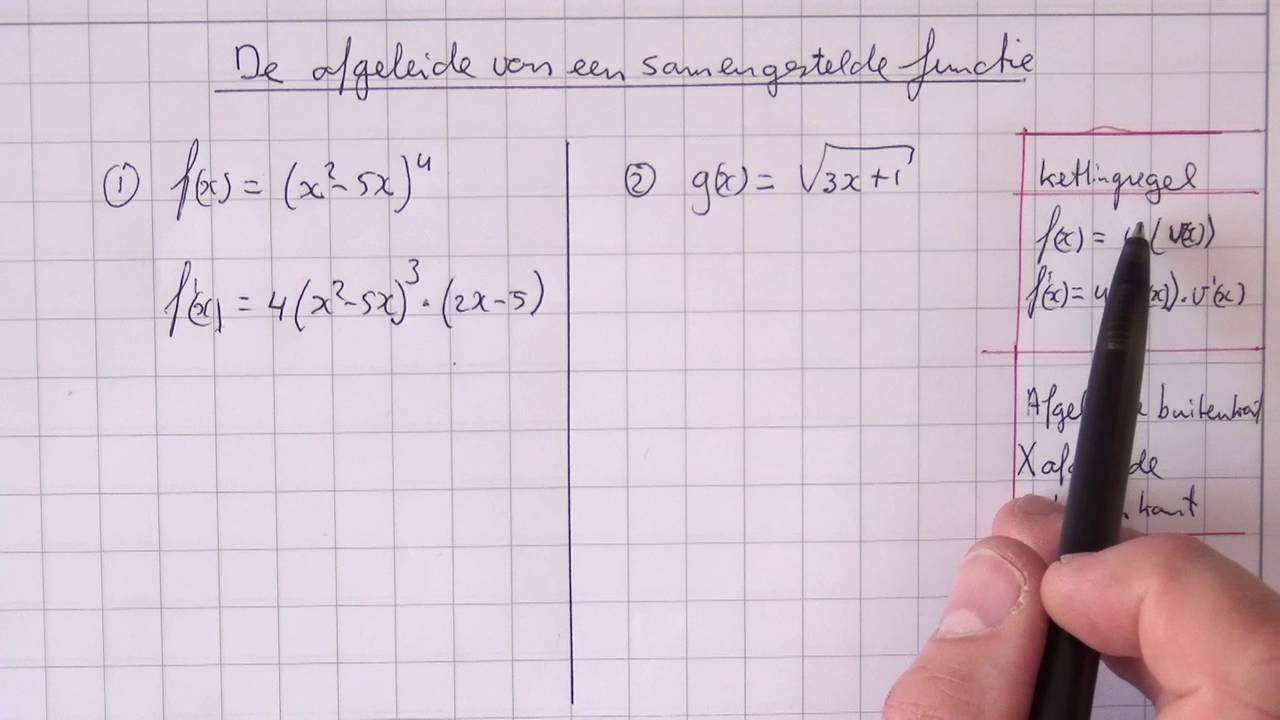 De afgeleide van een samengestelde functie
① f(x) = (x² - 5x)⁴
f'(x) = 4(x² - 5x)³ · (2x - 5)
② g(x) = √3x + 1
kettingregel
f(x) = (v(x))
f'(x) = u x)) · v'(x)
buitenkant
X
kant